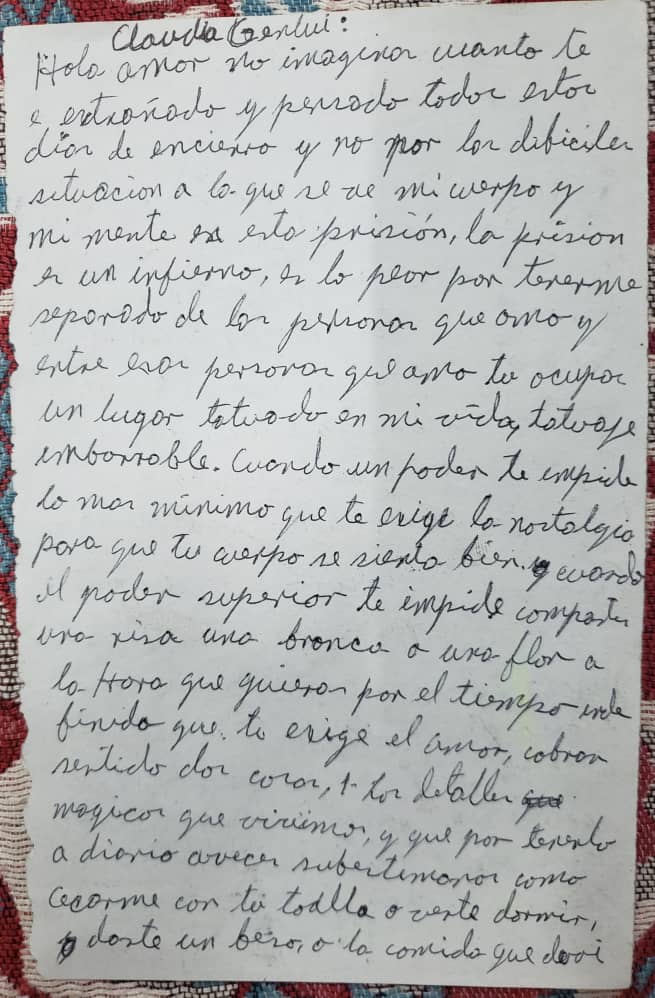 Claudia Genlui:
Hola amor no imaginas cuanto te
e extrañado y pensado todos estos
días de encierro y no por los dificiles
situacion a la que se ve mi cuerpo y
mi mente en esta prisión, la prision
es un infierno, es lo peor por tenerme
separado de las personas que amo y
entre esas personas que amo tu ocupas
un lugar tatuado en mi vida, tatuaje
imborrable. Cuando un poder te impide
lo mas minimo que te exige la nostalgia
para que tu cuerpo se sienta bien y cuando
el poder superior te impide compartir
una risa una bronca o una flor a
la Hora que quieras por el tiempo inde
finido que te exige el amor, cobran
sentido dos cosas, 1- los detalles
magicos que vivimos, y que por tenerlo
a diario aveces subestimamos como
cecarme con tu toalla o verte dormir,
o darte un beso, o la comida que